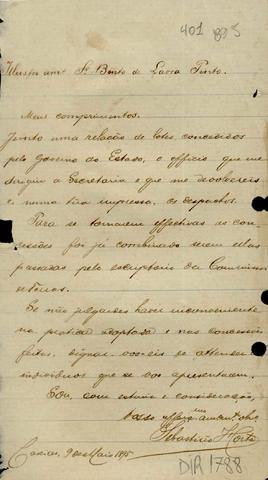 401 895
Illustre am.º Sr. Bento de Lavra Pinto.
Meus comprimentos.
Junto uma relação de lotes, concedidos
pelo governo do Estado, o officio que me
dirigiu a Secretaria e que me devolvereis
e n'uma tira impressa, os despachos.
Para se tornarem effectivas as con-
cessões foi já combinado serem ellas
passadas pelo escriptorio da Commissão
de Terras.
Se não julgardes haver inconveniente
na pratica adoptada e nas concessões
feitas, dignai-vos
individuos que se vos apresentarem.
Sou, com estima e consideração,
Vosso
Sebastião
Caxias, 9 de Maio 1895
DIR 1788